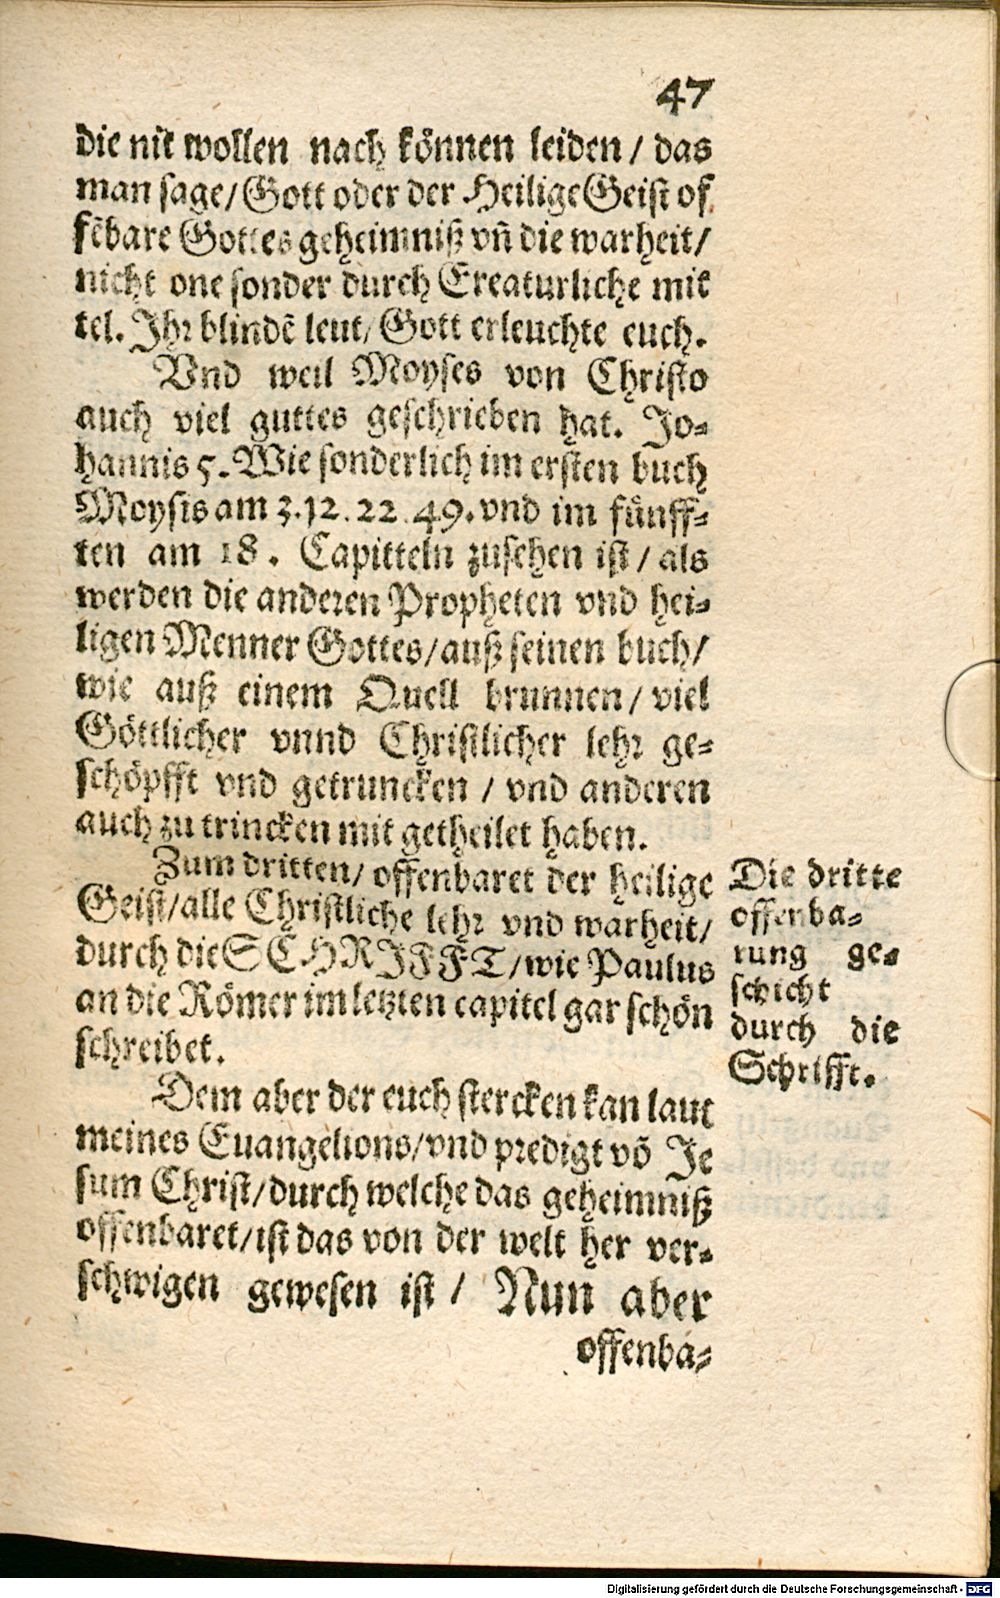 47
die nit wollen nach können leiden / das
man sage / Gott oder der Heilige Geist of
fēbare Gottes geheimniß vñ die warheit /
nicht one sonder durch Creaturliche mit
tel. Ihr blindē leut / Gott erleuchte euch.
Vnd weil Moyses von Christo
auch viel guttes geschrieben hat. Jo-
hannis 5. Wie sonderlich im ersten buch
Moysis am 3. 12. 22. 49. vnd im fünff-
ten am 18. Capitteln zusehen ist / als
werden die anderen Propheten vnd hei-
ligen Menner Gottes / auß seinen buch /
wie auß einem Quell brunnen / viel
Göttlicher vnnd Christlicher lehr ge-
schöpfft vnd getruncken / vnd anderen
auch zu trincken mit getheilet haben.
Zum dritten / offenbaret der heilige
Geist / alle Christliche lehr vnd warheit /
durch die SCHRIFFT / wie Paulus
an die Römer im letzten capitel gar schön
schreibet.
Die dritte
offenba-
rung ge-
schicht
durch die
Schrifft.
Dem aber der euch stercken kan laut
meines Euangelions / vnd predigt vō Je
sum Christ / durch welche das geheimniß
offenbaret / ist das von der welt her ver-
schwigen gewesen ist / Nun aber
offenba-
Digitalisierung gefördert durch die Deutsche Forschungsgemeinschaft - DFG